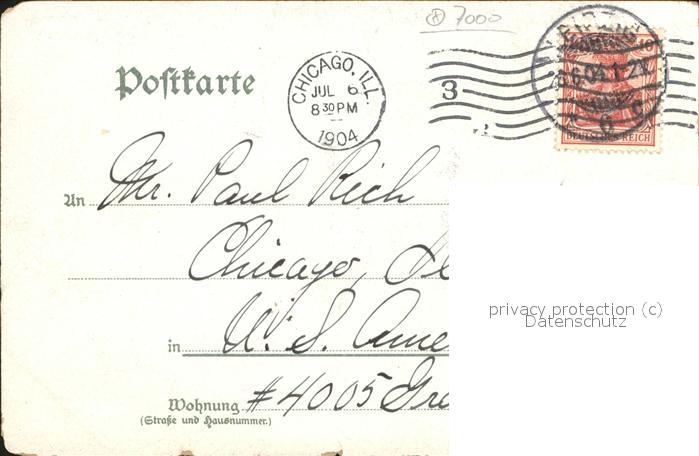 7000
Postkarte
CHICAGO, ILL.
JUL 6
8 30 PM
1904
3
LEIPZIG
10
DEUTSCHES REICH
An Mr. Paul Rich
Chicago,
in U. S. Ame
Wohnung #4005 Gre
(Straße und Hausnummer.)
privacy protection (c)
Datenschutz